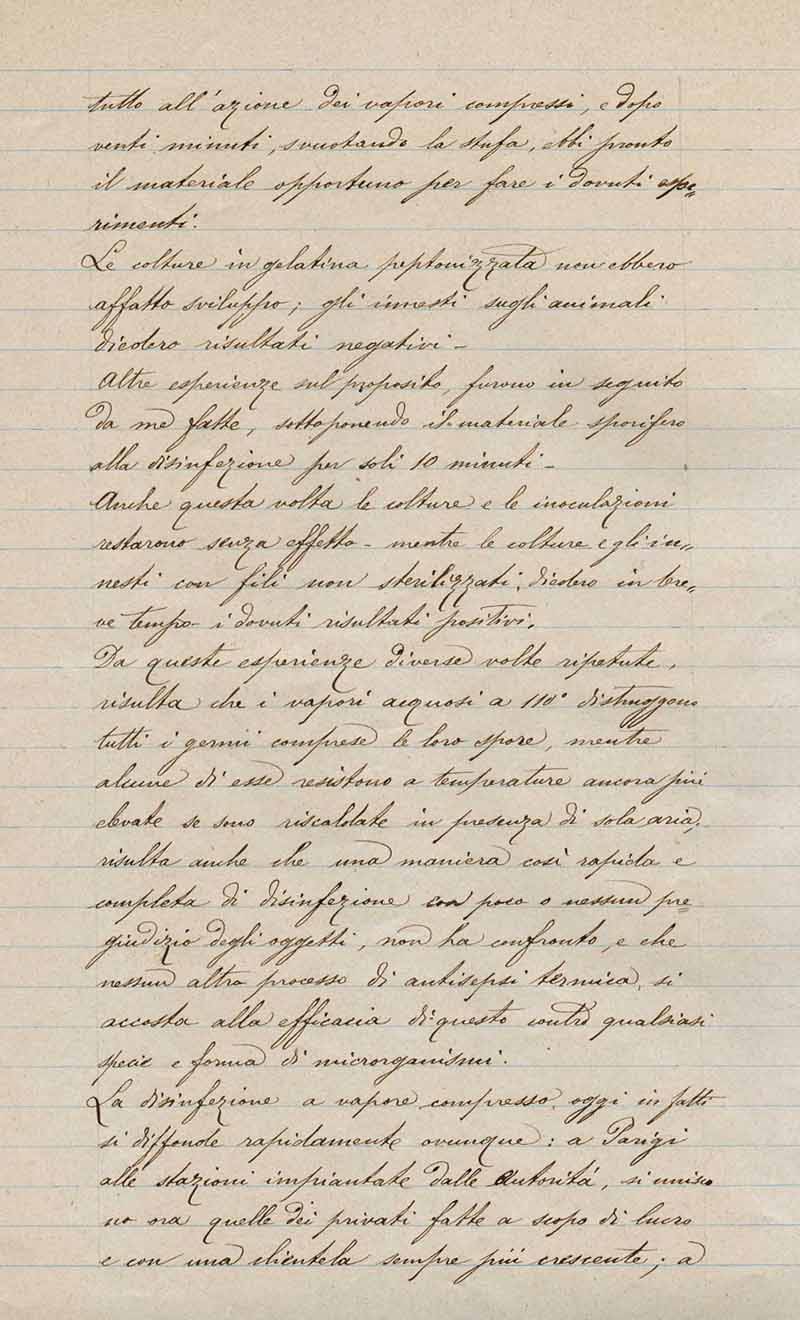 tutto all'azione dei vapori compressi, e dopo
venti minuti, svuotando la stufa, ebbi pronto
il materiale opportuno per fare i dovuti espe=
rimenti.
Le colture in gelatina peptonizzata non ebbero
affatto sviluppo; gli innesti sugli animali
diedero risultati negativi -
Altre esperienze sul proposito, furono in seguito
da me fatte, sottoponendo il materiale sporifero
alla disinfezione per soli 10 minuti -
Anche questa volta le colture e le inoculazioni
restarono senza effetto - mentre le colture e gli in=
nesti con fili non sterilizzati, diedero in bre=
ve tempo - i dovuti risultati positivi.
Da queste esperienze diverse volte ripetute,
risulta che i vapori acquosi a 110° distruggono
tutti i germi comprese le loro spore, mentre
alcune di esse resistono a temperature ancora più
elevate se sono riscaldate in presenza di sola aria;
risulta anche che una maniera così rapida e
completa di disinfezione con poco o nessun pre=
giudizio degli oggetti, non ha confronto, e che
nessun altro processo di antisepsi termica, si
accosta alla efficacia di questo contro qualsiasi
specie e forma di microrganismi.
La disinfezione a vapore compresso, oggi in fatti
si diffonde rapidamente ovunque: a Parigi
alle stazioni impiantate dalle autorità, si unisco
no ora quelle dei privati fatte a scopo di lucro
e con una clientela sempre più crescente; a